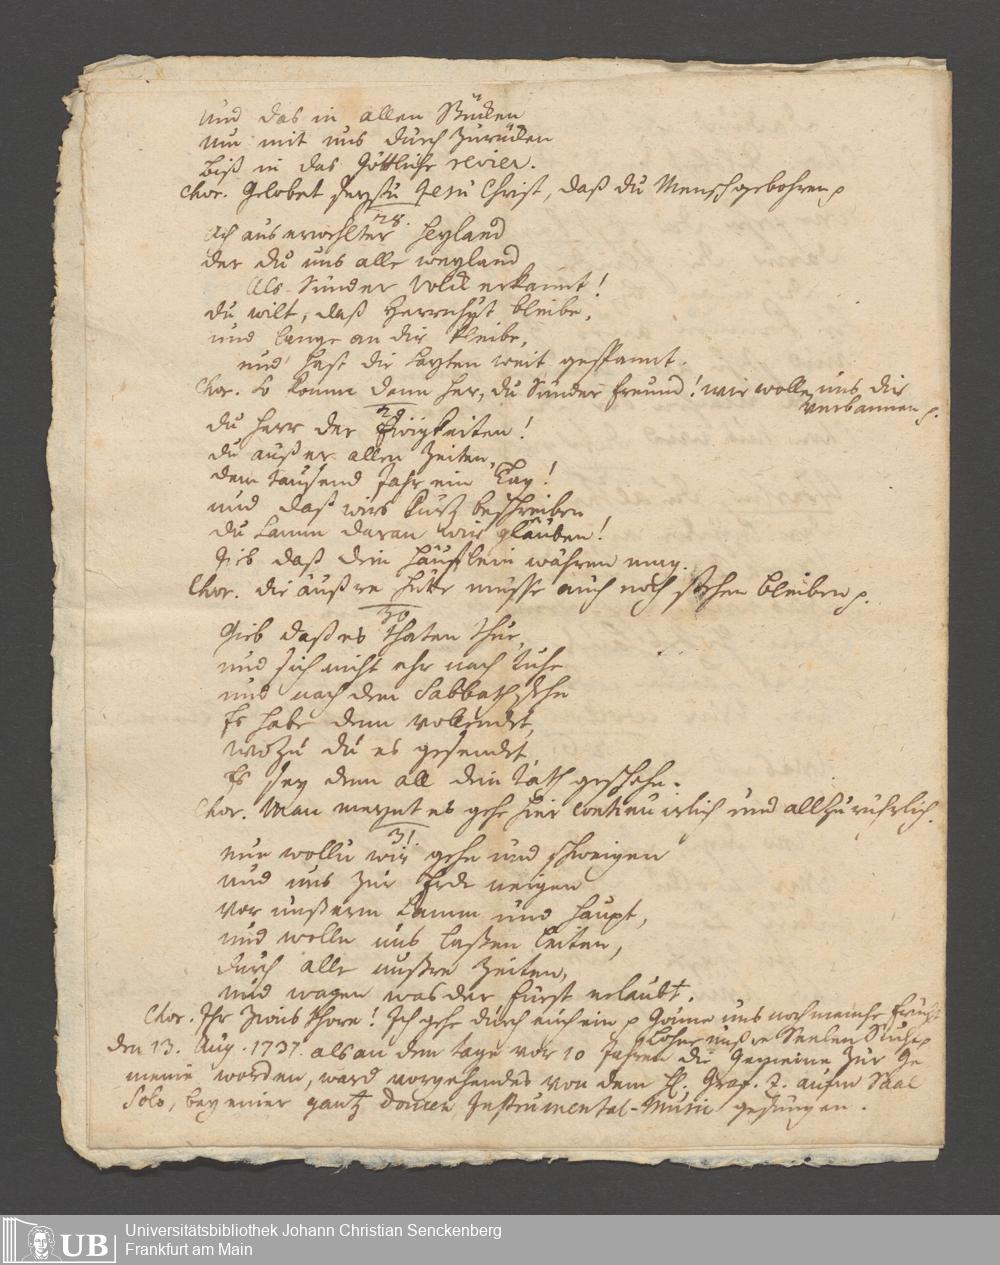 und das in allen Stücken
nun mit uns durch zurücken
biß in das Göttliche revier.
Chor. Gelobet seystu Jesu Christ, daß du Mensch gebohren p
28.
Ach auserwehlter Heyland
der du uns alle weyland
Als Sünder Volck erkannt!
du wilt, daß Herrnhut bleibe,
und lange an dir kleibe,
und hast die Sayten weit gespannt.
Chor. So komm denn her, du Sünder Freund! wir wolle uns dir
verbannen p.
29
du Herr der Ewigkeiten!
du außer allen Zeiten,
dem tausend Jahr ein Tag!
und daß wirs kurtz beschreiben
du Lamm daran wir gläuben!
Gieb daß dein Häufflein währen mag.
Chor. die äußre Hütte müsse auch noch stehen bleiben p.
30
Gieb daß es thaten thue,
und sich nicht ehr nach Ruhe
und nach dem Sabbath sehe
Es habe denn vollendet,
wozu du es gesendet,
Es sey denn all dein Rath geschehn.
Chor. Man meynt es gehe hier continuirlich und allzu rührlich.
31
nun wolln wir gehn und schweigen
und uns zur Erde neigen
vor unserm Lamm und Haupt,
und wolln uns laßen leiten,
durch alle unsre Zeiten,
und wagen was der Fürst erlaubt.
Chor. Ihr Zions thore! Ich gehe durch euch ein p Gönne uns noch manche Frucht
Lohne unsre Seelen Suche p
den 13. Aug. 1737. als an dem tage vor 10 Jahren die Gemeine zur Ge
meine worden, ward vorgehendes von dem H. Graf. Z. aufm Saal
Solo, bey einer gantz doucen Instrumental-Music gesungen.
UB
Universitätsbibliothek Johann Christian Senckenberg
Frankfurt am Main